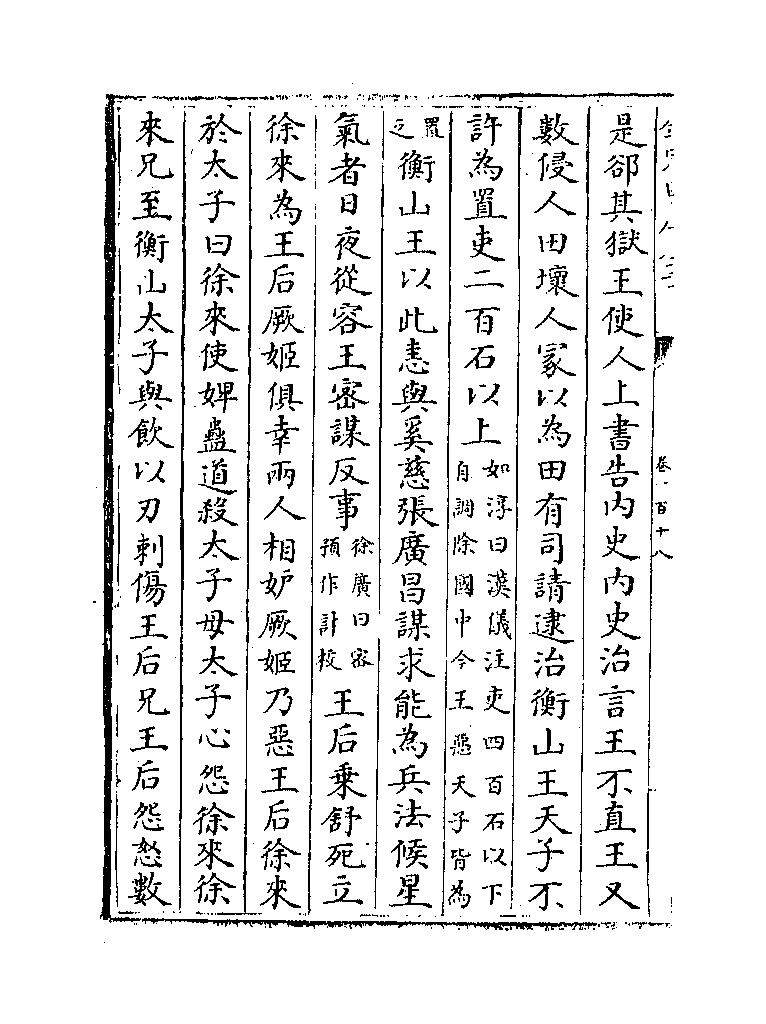 卷一百十八
是郤其獄王使人上書告內史內史治言王不直王又
數侵人田壞人冢以為田有司請逮治衡山王天子不
許為置吏二百石以上如淳曰漢儀注吏四百石以下自調除國中今王惡天子皆為
置之衡山王以此恚與奚慈張廣昌謀求能為兵法候星
氣者日夜從容王密謀反事徐廣曰密預作計校王后乘舒死立
徐來為王后厥姬俱幸兩人相妒厥姬乃惡王后徐來
於太子曰徐來使婢蠱道殺太子母太子心怨徐來徐
來兄至衡山太子與飲以刃刺傷王后兄王后怨怒數